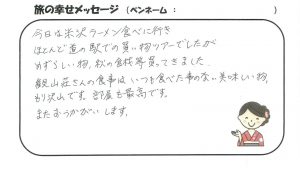 旅の幸せメッセージ (ペンネーム: )
今日は米沢ラーメン食べに行き
ほとんど道の駅での買い物ツアーでしたが
めずらしい物、秋の食材等買ってきました。
観山荘さんの食事は いつも食べた事のない美味しい物、
もり沢山です。部屋も最高です。
またおうかがいします。